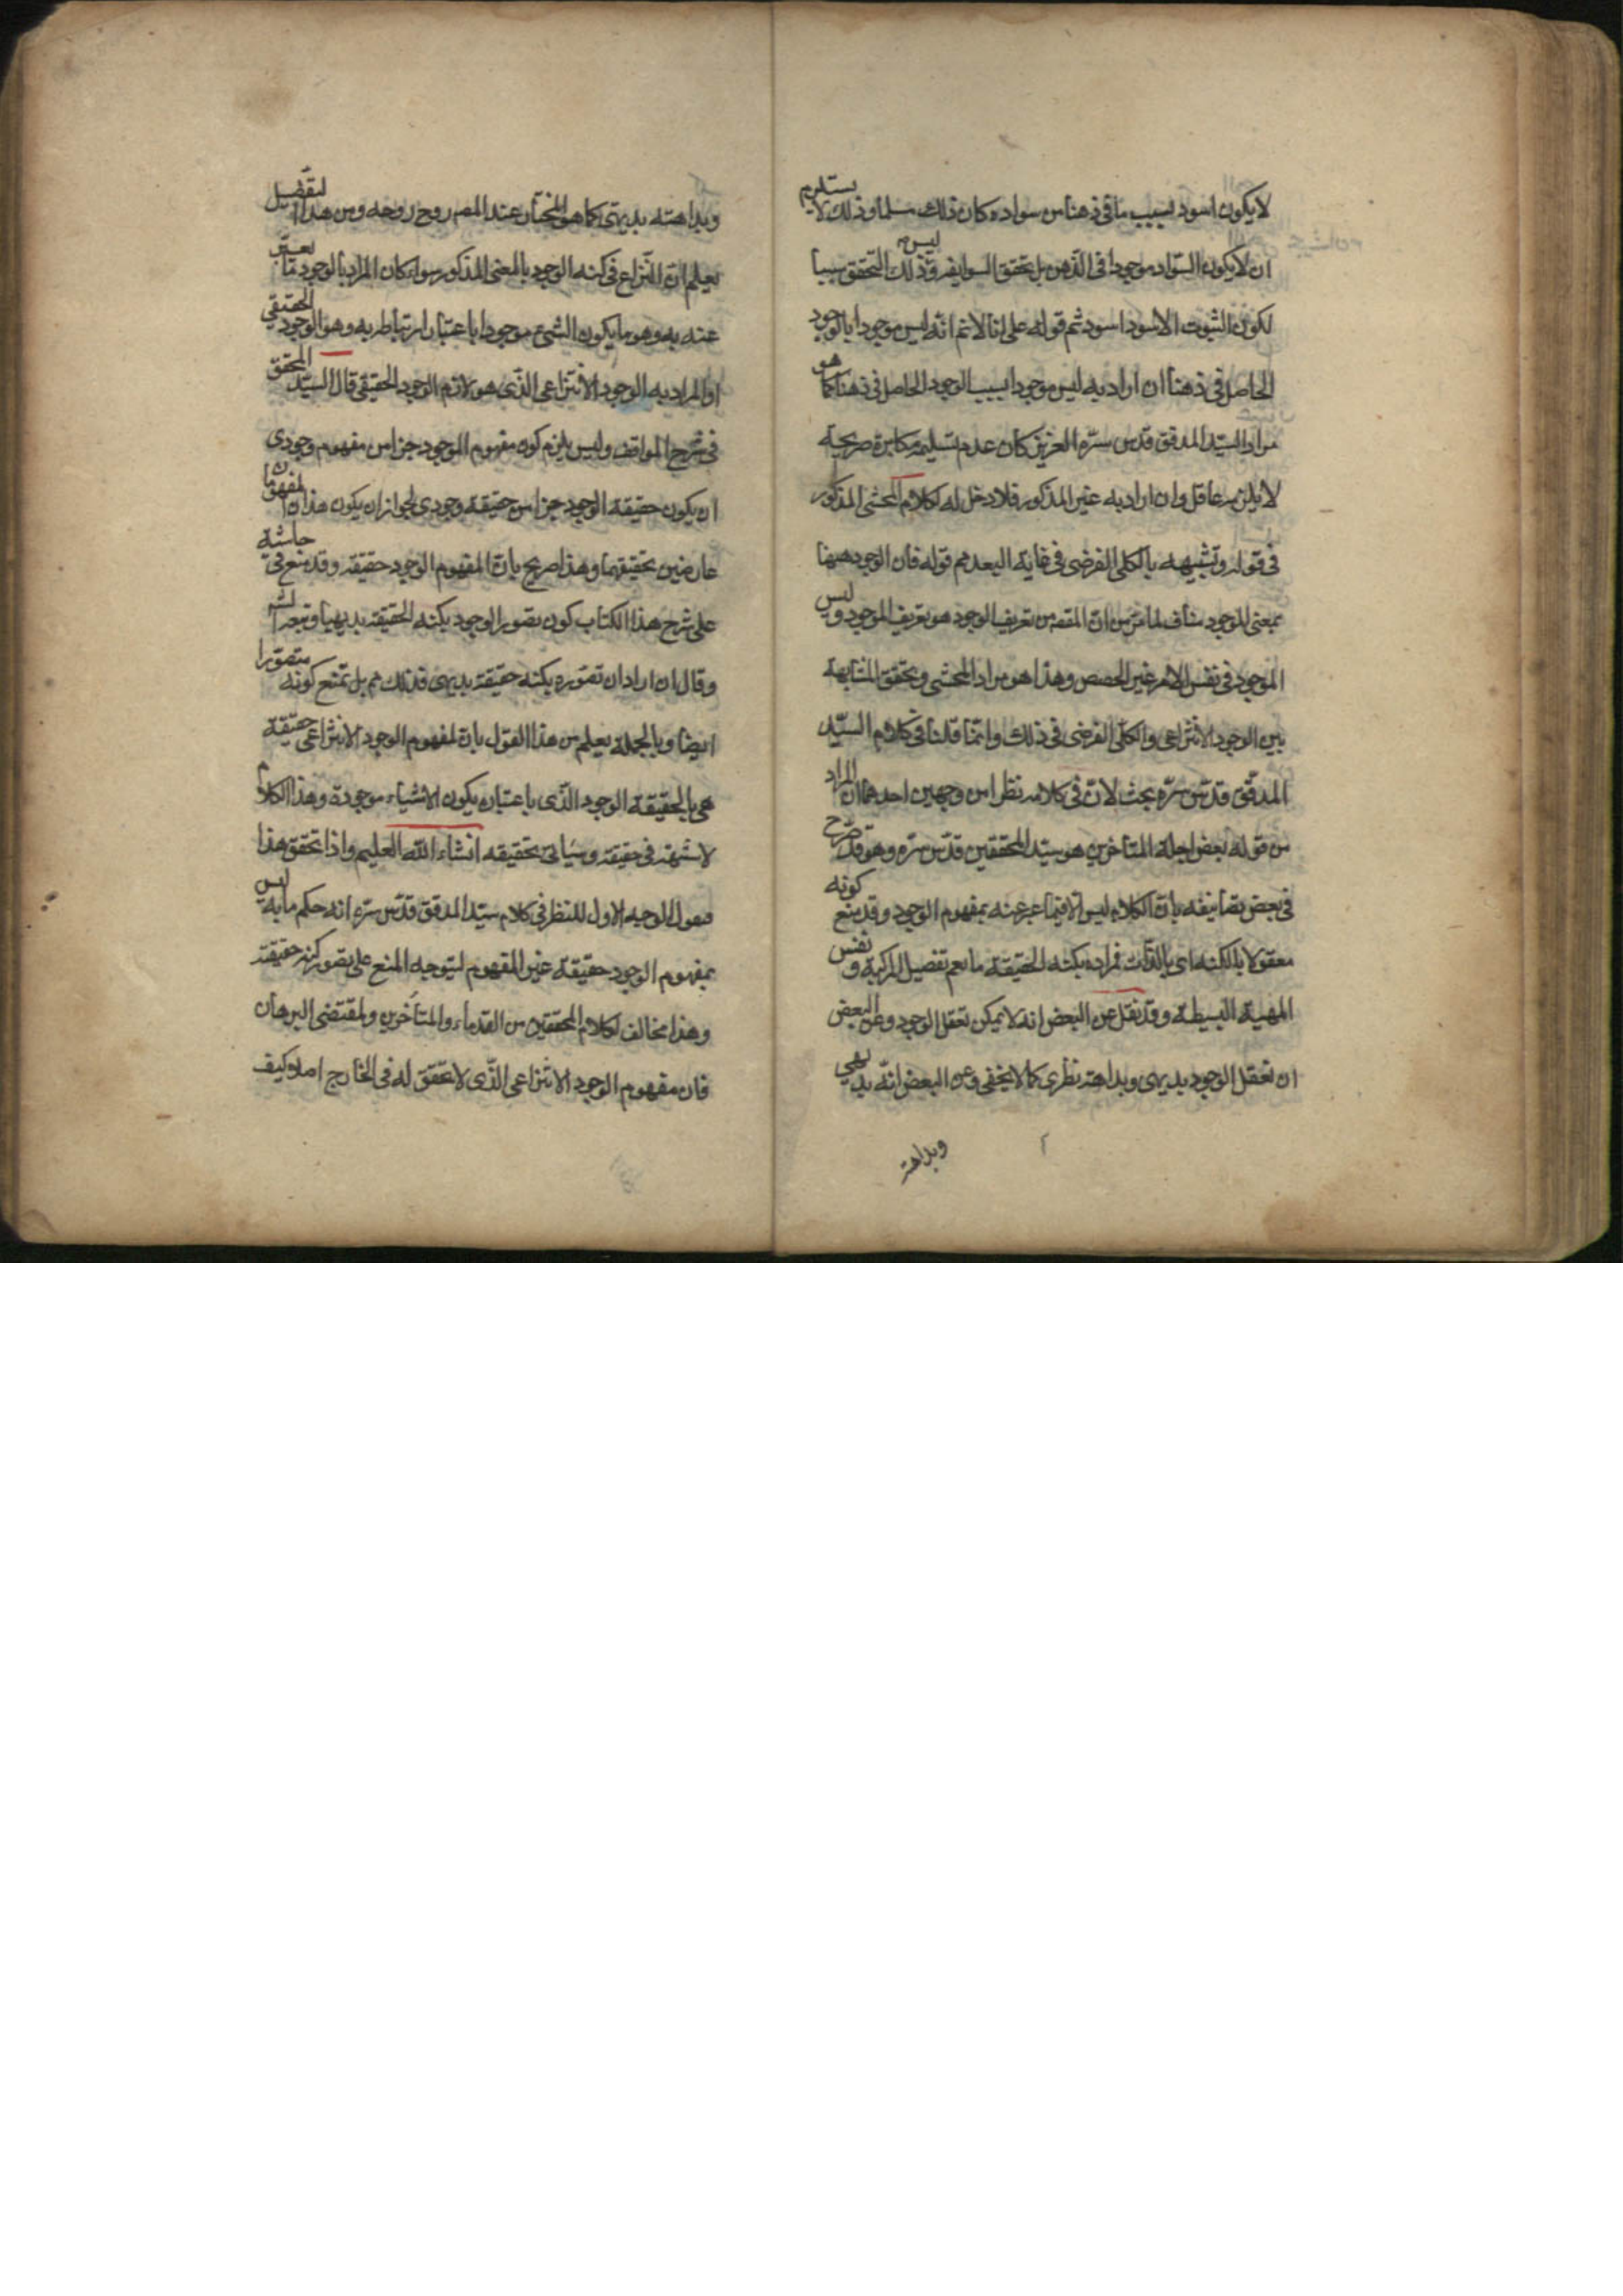 لا يكون اسود بسبب ما فى ذهننا من سواده كان ذلك مسلما وذلك لا يستلزم
ان لا يكون السّواد موجودا فى الذّهن بل تحقق السواد فيه وليس ذلك التحقق سببا
لكون الثبوت الاسود اسود ثم قوله على انا لا نم انّه ليس موجودا بالوجود
الحاصل فى ذهننا ان اراد به ليس موجودا بسبب الوجود الحاصل فى ذهننا كما هو
مراد السيّد المدقق قدس سرّه العزيز كان عدم تسليمه مكابرة صريحية
وان اراد به غير المذكور فلا دخل له لكلام المحشى المذكور
فى قوله وتشبيهه بالكلى الفرضى فى غاية البعد هم قوله فان الوجود ههنا
بمعنى الموجود مناف لما مرّ من انّ المقصد من تعريف الوجود هو تعريف الموجود وليس
الموجود فى نفس الامر غير الحصص وهذا هو مراد المحشى وتحقق المشابهة
بين الوجود الانتزاعى والكلّى الفرضى فى ذلك وانّما قلنا فى كلام السيّد
المدقّق قدّس سرّه بحث لانّ فى كلامه نظرا من وجهين احدهما ان المراد
من قوله بعض اجلة المتأخرين هو سيّد المحققين قدّس سرّه وهو قد صرّح
فى بعض تصانيفه بانّ الكلام ليس الا فيما عبر عنه بمفهوم الوجود وقد منع كونه
معقولا بالكنه اى بالذّات فمراده بكنه الحقيقة ما يعم تفصيل المركبة ونفس
المهية البسيطة وقد نقل عن البعض انه لا يمكن تعقل الوجود وعن البعض
ان تعقل الوجود بديهى وبداهته نظرى كما لا يخفى وعن البعض انّه بديهي
وبداهته
وبداهته بديهىّ كما هو المختار عند المص روح روحه ومن هذا التفصيل
يعلم ان النّزاع فى كنه الوجود بالمعنى المذكور سواء كان المراد بالوجود ما يعبّر
عنه به وهو ما يكون الشئ موجودا باعتبار ارتباطه به وهو الوجود الحقيقي
او المراد به الوجود الانتزاعى الذّى هو لازم الوجود الحقيقى قال السيّد المحقق
فى شرح المواقف وليس يلزم من كون مفهوم الوجود جزا من مفهوم وجودى
ان يكون حقيقة الوجود جزا من حقيقة وجودى لجواز ان يكون هذان المفهومان
عارضين لحقيقتهما وهذا صريح بانّ لمفهوم الوجود حقيقة وقد منع فى حاشية
على شرح هذا الكتاب كون تصور الوجود بكنه الحقيقة بديهيا
وقال ان اراد ان تصوّره بكنه حقيقته بديهى فذلك مم بل نمنع كونه متصوّرا
ايضا وبالجملة يعلم من هذا القول بان لمفهوم الوجود الانتزاعى حقيقة
هى بالحقيقة الوجود الذّى باعتباره يكون الاشياء موجودة وهذا الكلام
لا شبهة فى حقيقته وسيأتى تحقيقه انشاء اللّه العليم واذا تحقق هذا
فنقول الوجه الاول للنظر فى كلام سيّد المدقق قدّس سرّه انه حكم بانه ليس
لمفهوم الوجود حقيقة غير المفهوم ليتوجه المنع على تصور كنه حقيقته
وهذا مخالف لكلام المحققين من القدماء والمتأخّرين ولمقتضى البرهان
فان مفهوم الوجود الانتزاعى الذّى لا تحقّق له فى الخارج اصلا وكيف